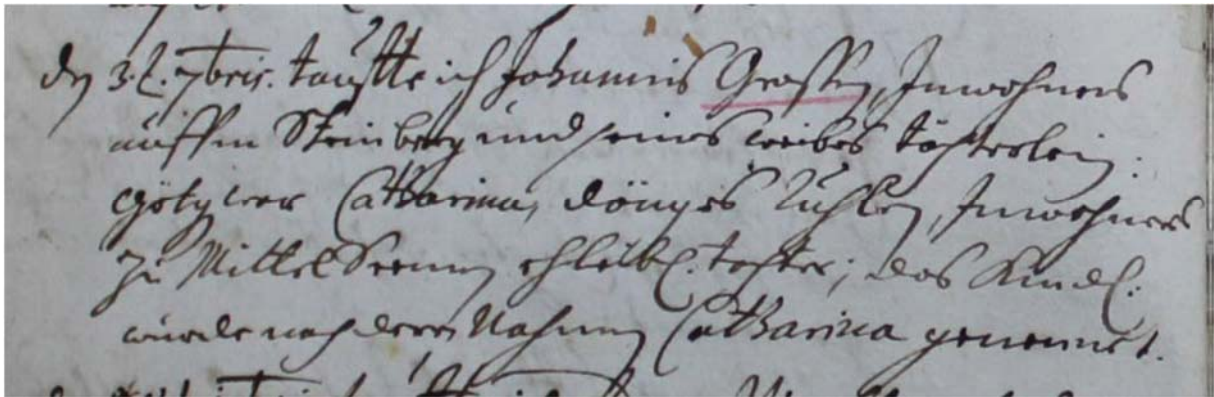 den 3. t. 7bris. tauffte ich Johannis Grossen, Inwohners
auffm Steinberg und seines weibes töchterlein
Catharina, Dönges Ruhlen, Inwohners
zu Mittel Seemen ehleibl. tochter; das Kindl.
wurde nach deren Nahmen Catharina genennet.